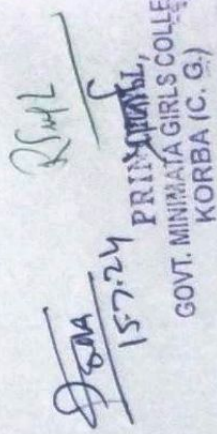 15.7.24
PRINCIPAL,
GOVT. MINIMATA GIRLS COLLE
KORBA (C. G.)